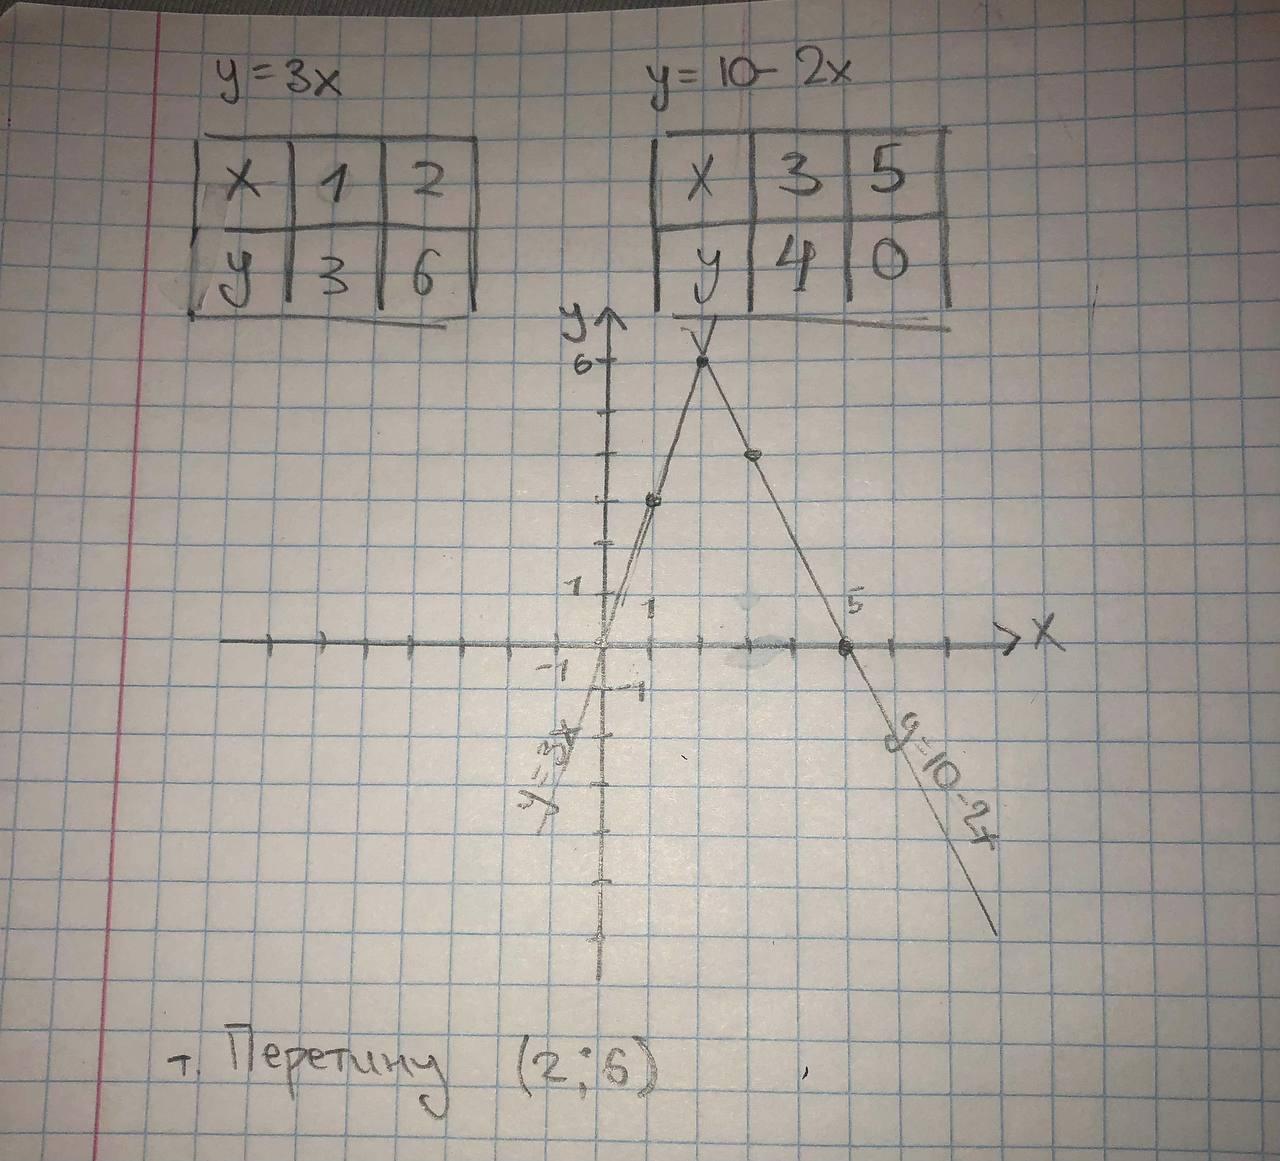 y = 3x
y = 10 - 2x
x 1 2
y 3 6
x 3 5
y 4 0
y
6
1
1
5
x
-1
-1
y = 3x
y = 10 - 2x
т. Перетину (2; 6)